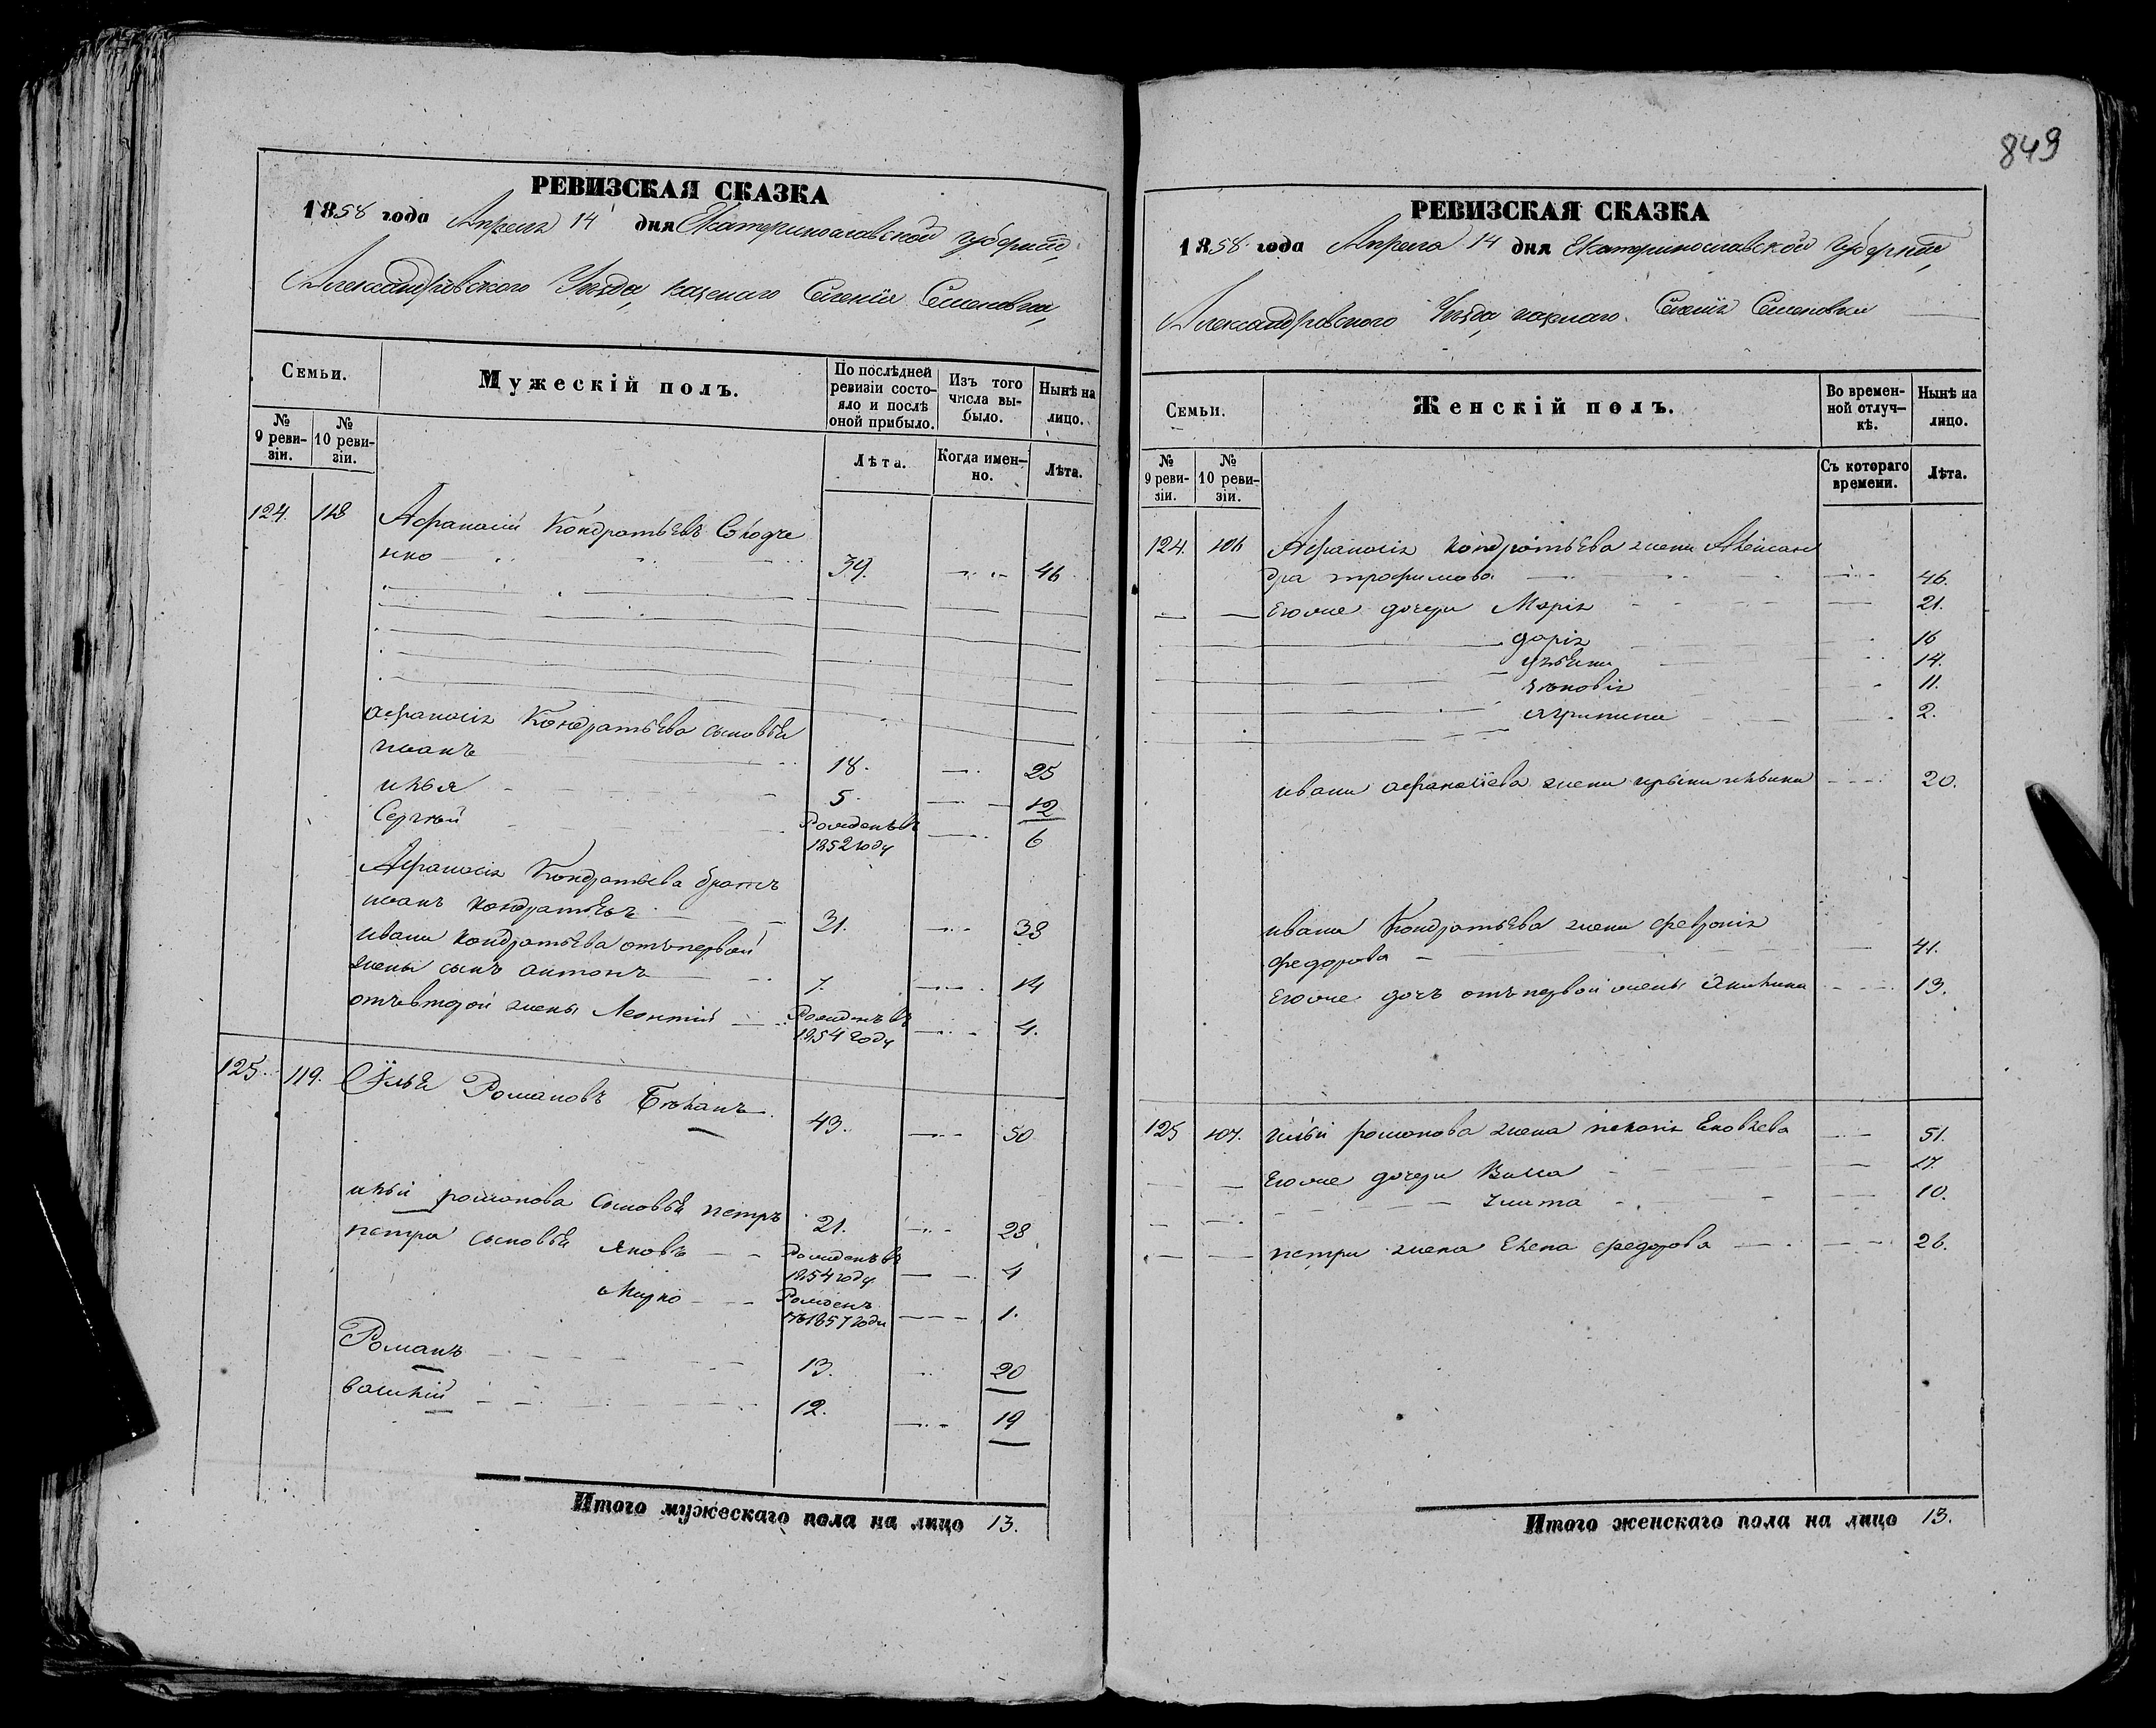 849
РЕВИЗСКАЯ СКАЗКА
1858 года Апреля 14 дня Екатеринославской губернии,
Александровского Уезда, казенаго Селенія Семеновки,
Семьи.
Мужескій полъ.
По послѣдней ревизіи состояло и послѣ оной прибыло.
Изъ того числа выбыло.
Нынѣ на лицо.
№ 9 ревизіи.
№ 10 ревизіи.
Лѣта.
Когда именно.
Лѣта.
124. 118 Афанасій Кондратьевъ
нко 39. 46
афанасія Кондратьева сыновья
иванъ 18. 25
илья 5. 12
Сергѣй Рожденъ въ 1852 году 6
Афанасія Кондратьева братъ
иванъ Кондратьевъ 31. 38
ивана Кондратьева отъ первой
жены сынъ антонъ 7. 14
отъ второй жены Леонтій Рожденъ въ 1854 году 4.
125. 119. Илья Романовъ 43. 50
ильи романова сыновья петръ 21. 28
петра сыновья яковъ Рожденъ въ 1854 году 4
Марко Рожденъ въ 1857 году 1.
Романъ 13. 20
василій 12. 19
Итого мужескаго пола на лицо 13.
РЕВИЗСКАЯ СКАЗКА
1858 года Апреля 14 дня Екатеринославской Губернии,
Александровского Уезда, казенаго Селенія Семеновки
Семьи.
Женскій полъ.
Во временной отлучкѣ.
Нынѣ на лицо.
№ 9 ревизіи.
№ 10 ревизіи.
Съ котораго времени.
Лѣта.
124. 106 Афанасія Кондратьева жена Александра
трофимова 46.
Его же дочери Марія 21.
дарія 16
14.
11.
агрипина 2.
ивана афанасіева жена ильина 20.
ивана Кондратьева жена феврония
федорова 41.
Его же дочь отъ первой жены Акилина 13.
125 107. ильи романова жена пелагія Яковлева 51.
Его же дочери Васса 17.
10.
петра жена Елена федорова 26.
Итого женскаго пола на лицо 13.